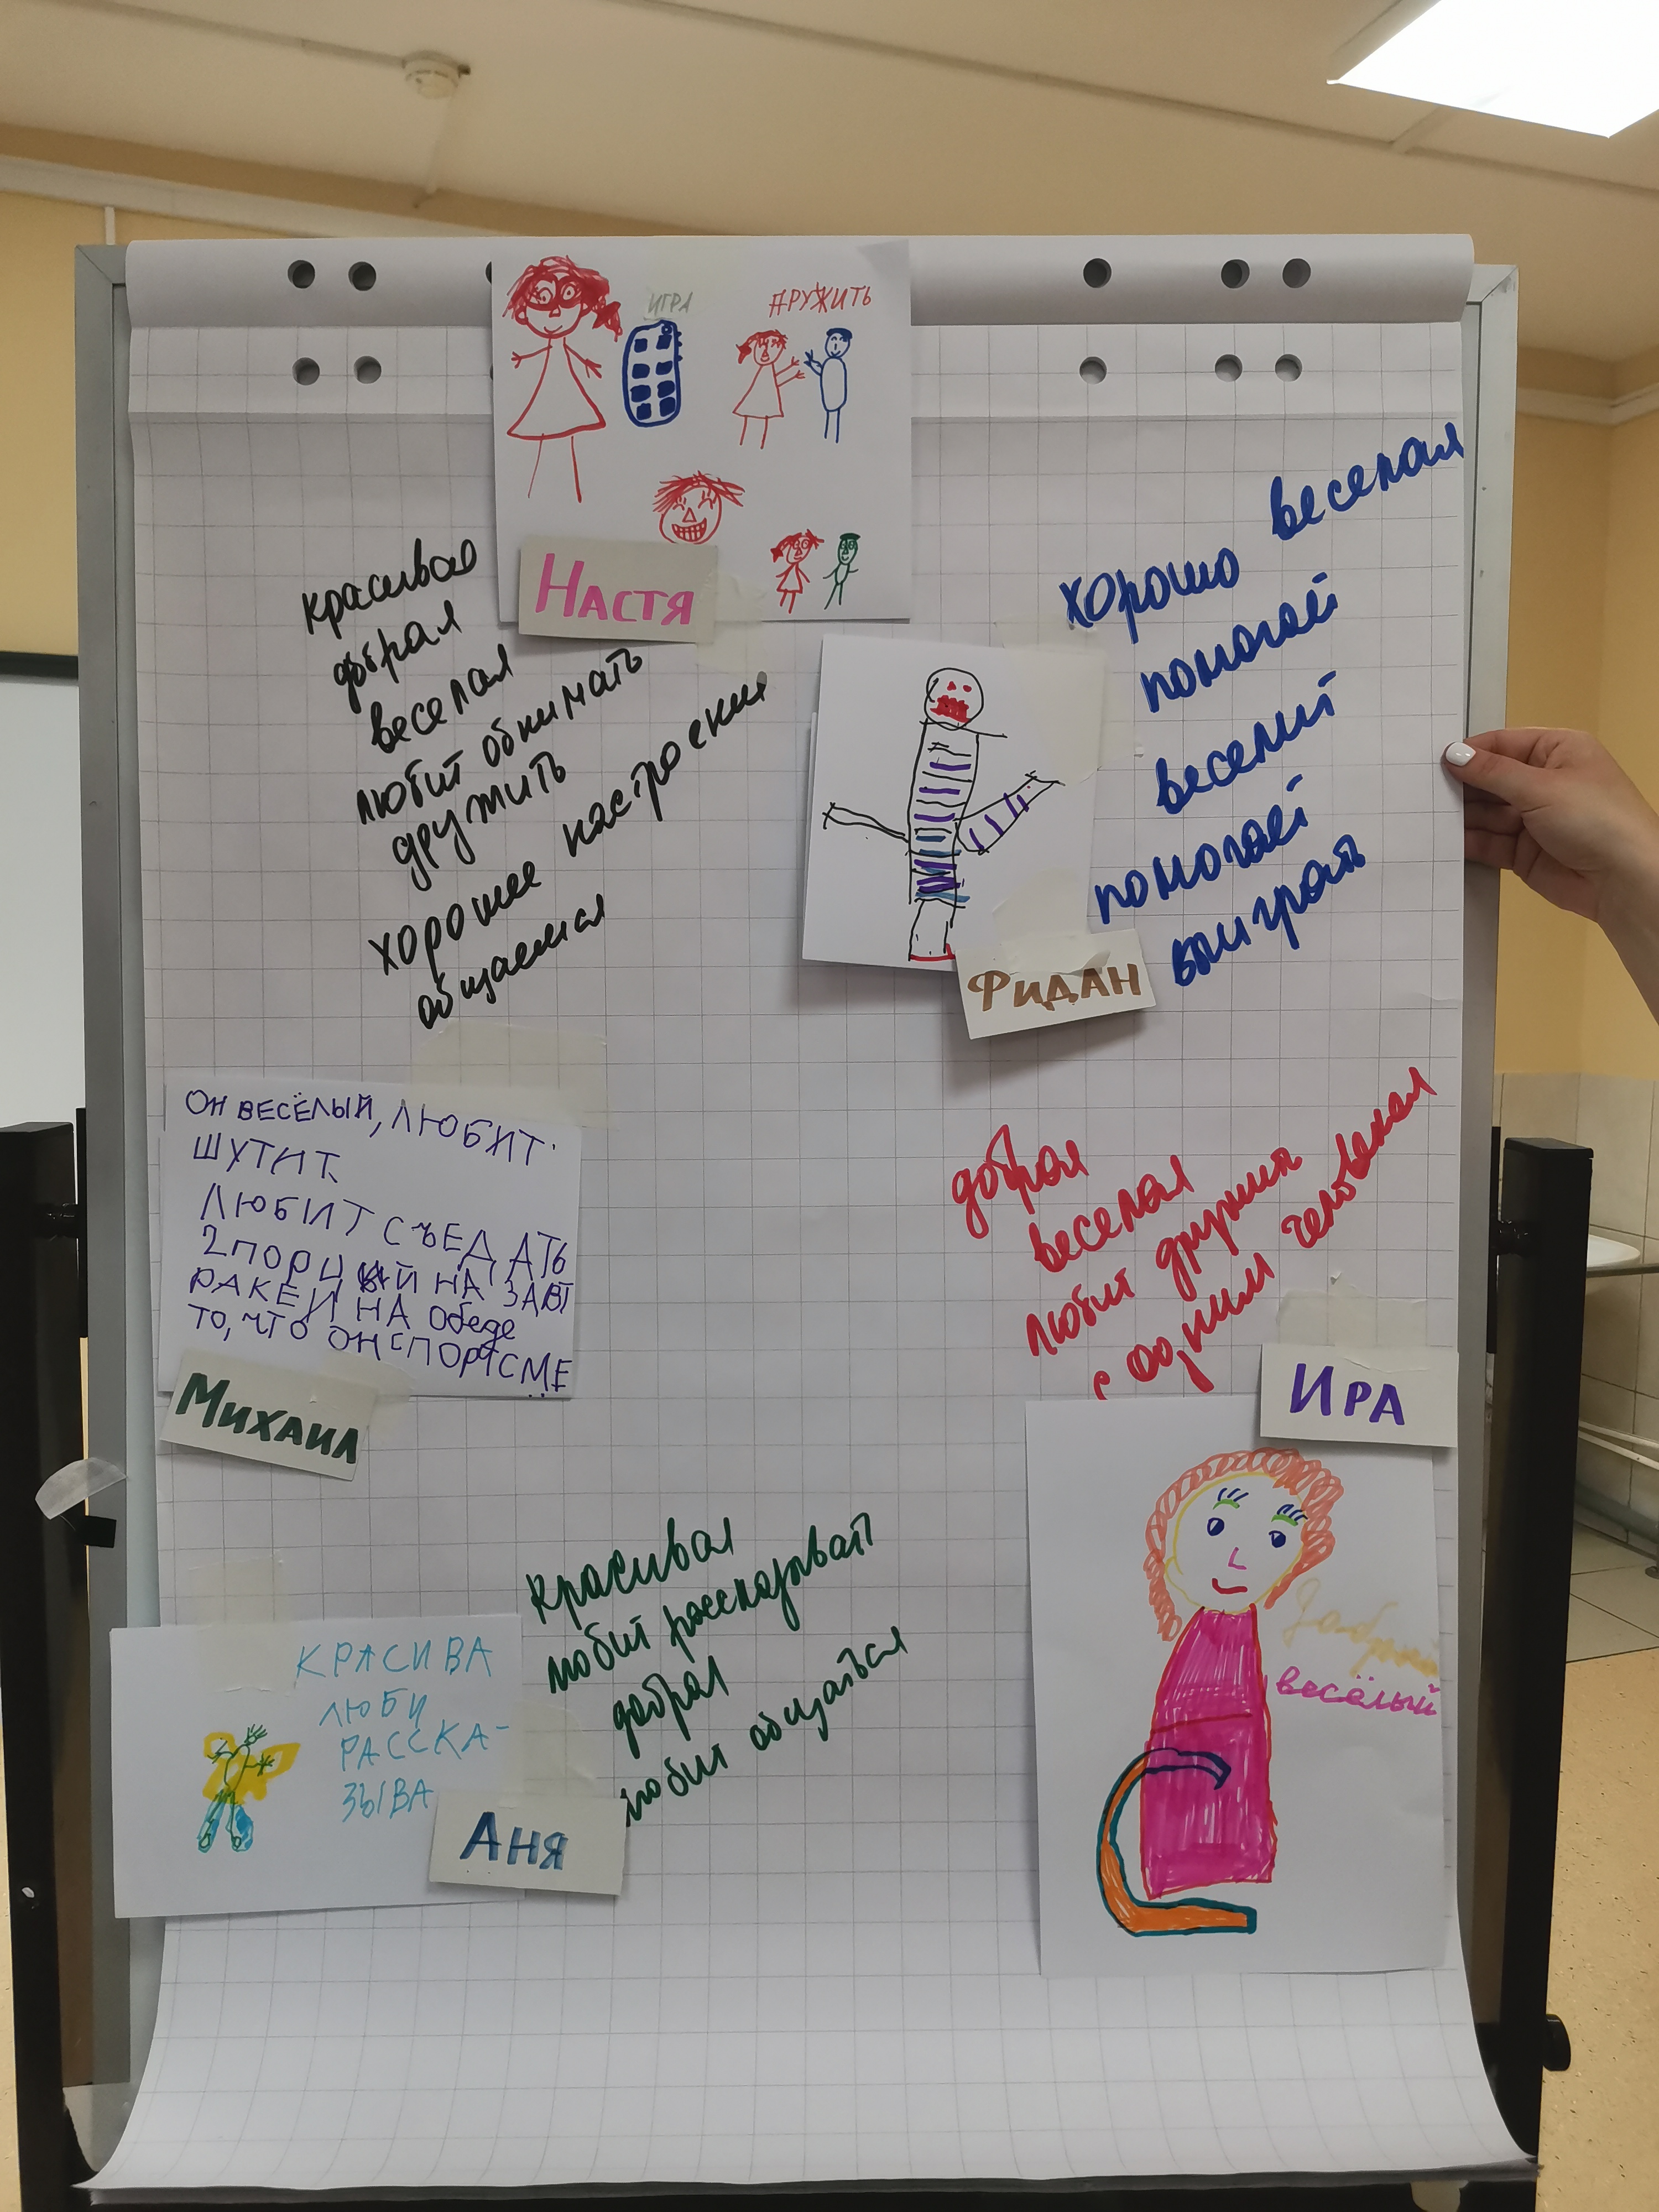 ИГРА
ДРУЖИТЬ
НАСТЯ
красивая
добрая
веселая
любит обнимать
дружить
хорошее настроение
общаемся
веселая
хорошо
помогает
веселит
помогает
выиграть
ФИДАН
ОН ВЕСЁЛЫЙ, ЛЮБИТ
ШУТИТ.
ЛЮБИТ СЪЕДАТЬ
2 ПОРЦИЙ НА ЗАВТ
РАКЕ И НА Обеде
ТО, ЧТО ОН СПОРТСМЕ
МИХАИЛ
добрая
веселая
любит дружить
с одним человеком
ИРА
добрый
весёлый
КРАСИВА
ЛЮБИ
РАССКА-
ЗЫВА
АНЯ
красивая
любит рассказывать
добрая
любит общаться